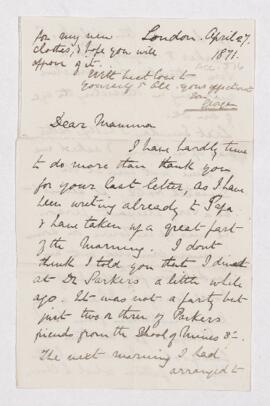 for my new
clothes, & hope you will
approve of it.
With best love to
yourself & all your affectionate
son
George
London. April 27.
1871.
Dear Mamma
I have hardly time
to do more than thank you
for your last letter, as I have
been writing already to Papa
& have taken up a great part
of the Morning. I don't
think I told you that I dined
at Dr Parkers a little while
ago. It was not a party but
just two or three of Parkers
friends from the School of Mines &c.
The next morning I had
arranged to